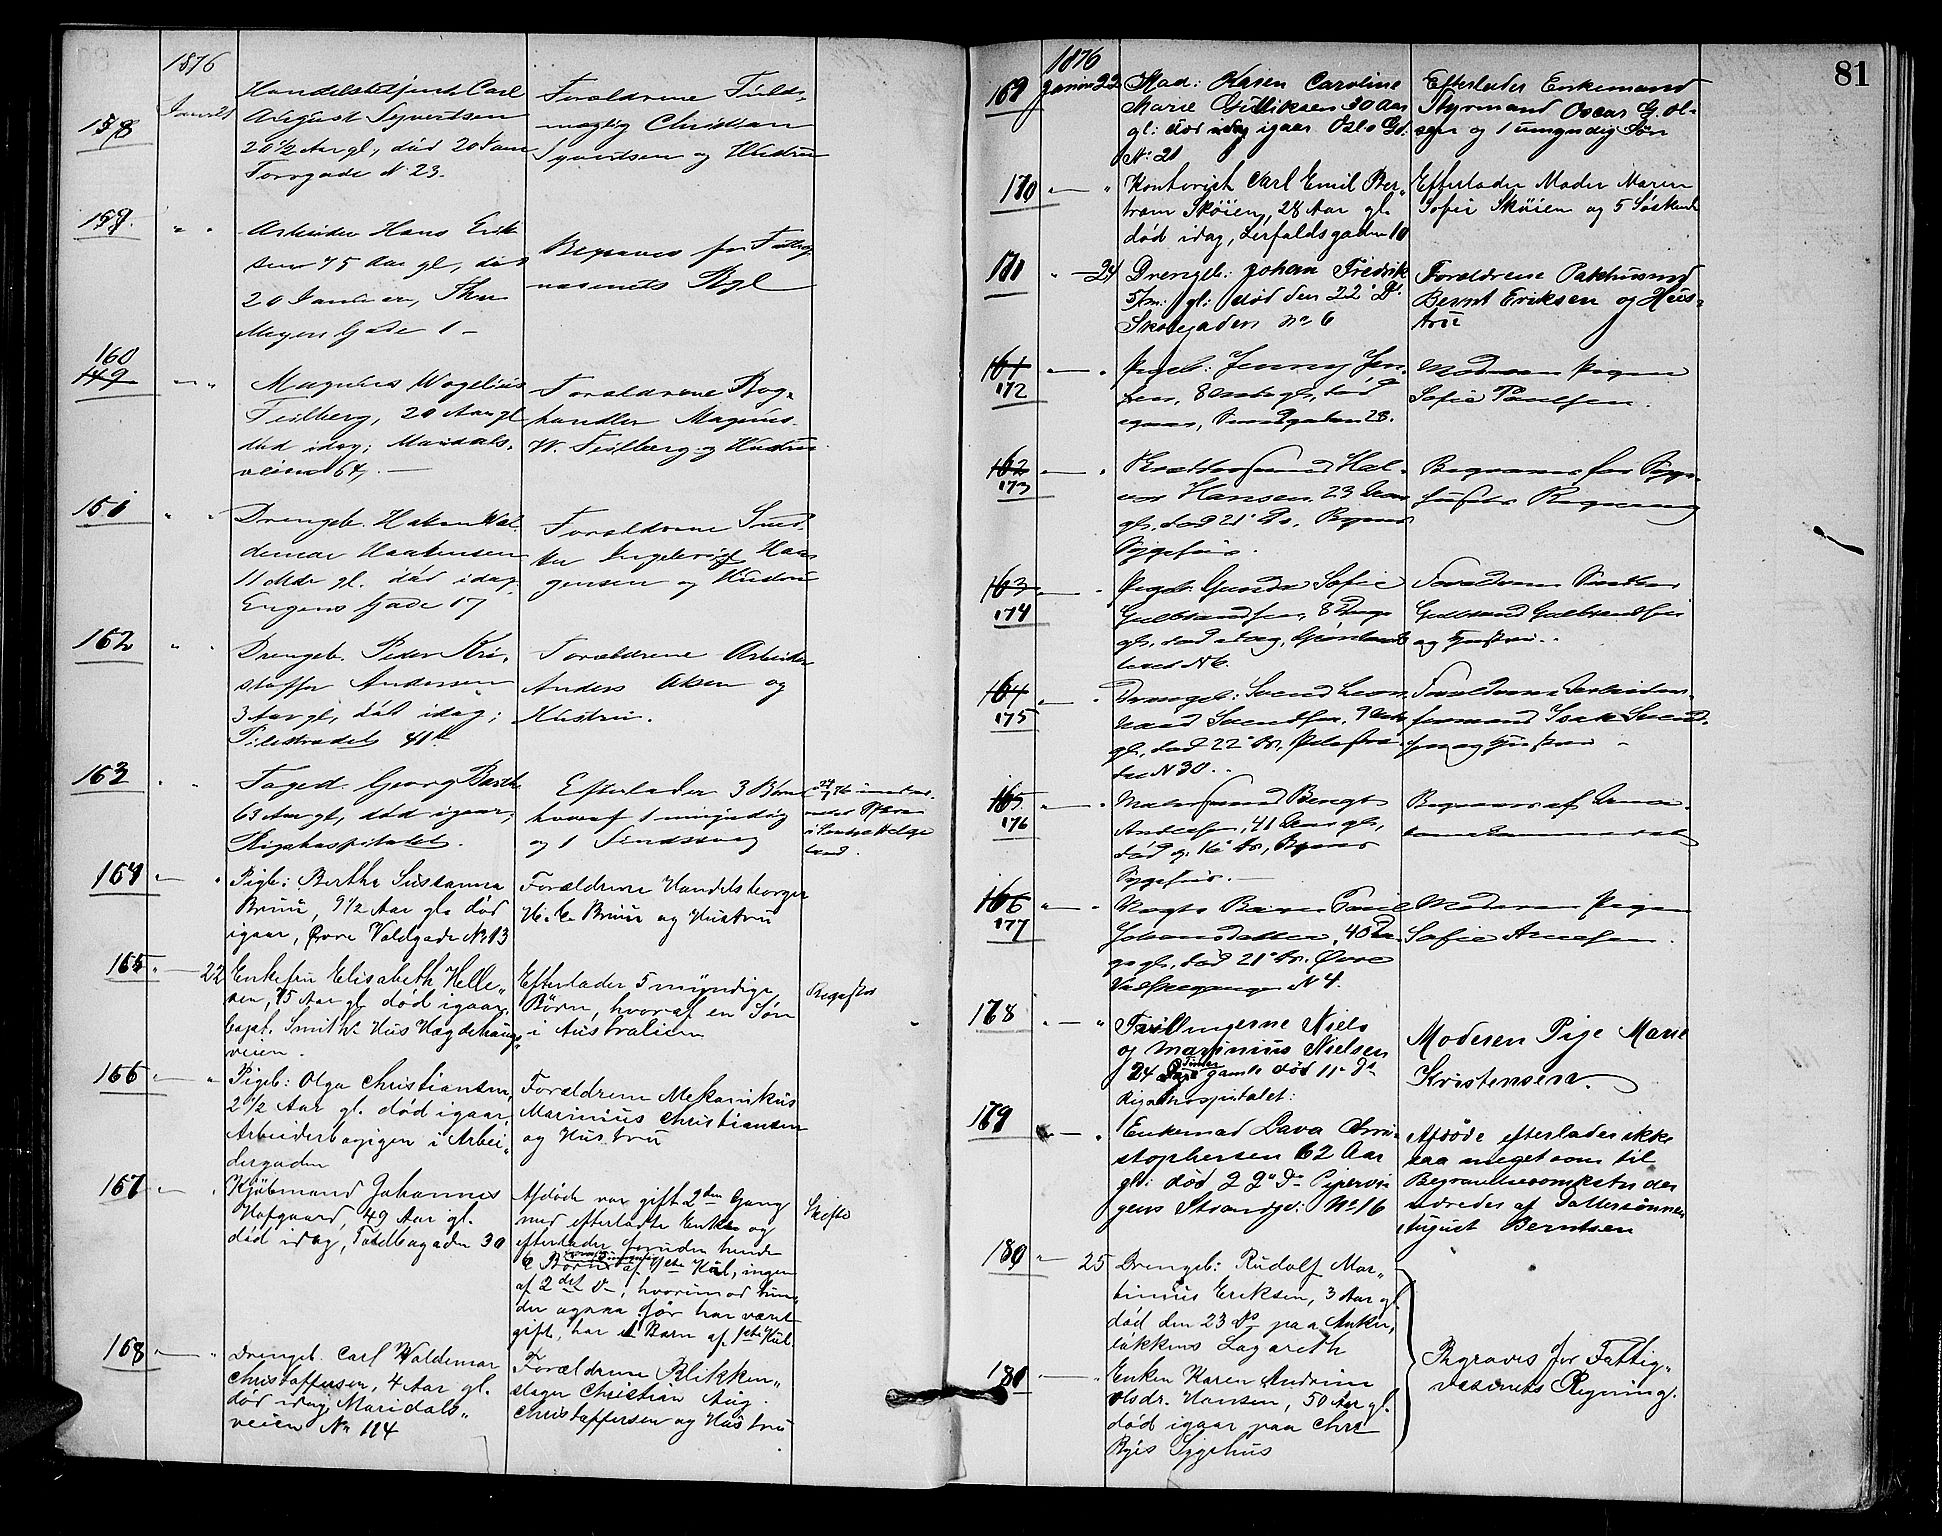 1876
158
Januar 21
Handelsbetjent Carl
August Syvertsen
20 1/2 Aar gl, død 20 Janr
Torvgade N 23.
Forældrene Fulds-
mægtig Christian
Syvertsen og Hustru
159
" "
Arbeider Hans Erik
sen 75 Aar gl, død
20 Januar, Thv
Meyers Gade 1 -
Begraves for Fattig
væsenets Rgl
160
149
— "
Magnus Wogelius
Feilberg, 20 Aar gl
død idag; Maridals-
veien 64. —
Forældrene Bog-
handler Magnus
W. Feilberg og Hustru
161
" "
Drengeb. Hakon Wal-
demar Haakensen
11 Mdr gl. død idag
Eugens Gade 17
Forældrene Sned-
ker
gensen og Hustru
162
" "
Drengeb. Peder Kri-
stoffer Andersen
3 Aar gl, død idag;
Pilestrædet 41 b
Forældrene Arbeider
Anders Olsen og
Hustru.
163
" "
Foged Georg Barth
63 Aar gl, død igaar,
Rigshospitalet.
Efterlader 3 Børn
hvoraf 1 umyndig
og 1 Sindssvag
164 — "
Pigb: Berthe Susanna
Bruun, 9 1/2 Aar gl død
igaar, Øvre Voldgade No 13
Forældrene Handelsborger
H. C. Bruun og Hustru
165 " — 22
Enkefru Elisabeth Helle-
sen, 75 Aar gl død igaar
Capt. Smiths Hus Hægdehaugs
veien.
Efterlader 5 myndige
Børn, hvoraf en Søn
i Australien
166 — "
Pigeb: Olga Christiansen,
2 1/2 Aar gl. død igaar,
Arbeiderboligen i Arbei-
dergaden
Forældrene Mekanikus
Marinius Christiansen
og Hustru
167 — "
Kjøbmand Johannes
Hofgaard, 49 Aar gl.
død idag, Toldbogaden 30
Afdøde var gift 2den Gang
med efterladte Enke og
efterlader foruden hende
6 Børn af 1ste Kul, ingen
af 2det Do, hvorimod hun,
der ogsaa før har været
gift, har 1 Barn af 1ste Kul.
Skifte
168 — "
Drengeb. Carl Waldemar
Christoffersen, 4 Aar gl.
død idag Maridals-
veien No 114
Forældrene Blikken-
slager Christian Aug.
Christoffersen og Hustru
81
1876
169 Januar 22
Mad: Karen Caroline
Marie Gulliksen 30 Aar
gl: død igaar Oslo Gd.
No 21
Efterlader Enkemand
Styrmand Oscar G. Ol-
sen og 1 umyndig Søn
170 — "
Kontorist Carl Emil Ber-
tram Skøien, 28 Aar gl.
død idag, Lerfaldsgaden 10
Efterlader Moder Maren
Sofie Skøien og 5 Søskende
171 " — 24
Drengeb: Johan Fredrik
5/m: gl: død den 22' Ds.
Skolegaden No 6
Forældrene Pakhusmd
Bernt Eriksen og Hus-
tru
161
172
— "
Pigeb: Jenny Jen-
sen, 8 Uger gl, død
igaar, Smedgaden 28.
Moderen Pigen
Sofie Paulsen.
162
173
— "
Hal-
vor Hansen 23 Aar
gl, død 21' Ds, Byens
Sygehus.
Begraves for Syge-
husets Regning
163
174
— "
Pigeb: Gunda Sofie
Gulbrandsen, 8 Dage
gl, død idag, Grønlands
leret N 6.
Forældrene
Gulbrand Gulbrandsen
og Hustru.
164
175
" — "
Drengeb: Svend Leon-
hard Svendsen, 9
gl, død 22' Ds, Pilestræ-
det N 30.
Forældrene Arbeider-
formand Isak Svend-
sen og Hustru
165
176
" — "
Malersvend Bengt
Andersen, 41 Aar gl,
død 16' Ds, Byens
Sygehus. —
Begraves af
166
177
" — "
Nogte Barn Emil
Johansdatter, 40 Da-
ge gl, død 21' Ds. Øvre
N 4.
Moderen Pigen
Sofie Arnesen.
178
" — "
Tvillingerne Niels
og Marinius Nielsen
24 Timer gamle død 11' Ds
Rigshospitalet:
Moderen Pige Marie
Kristensen.
179
— "
Enkemad Lava Chri-
stophersen 62 Aar
gl: død 22' Ds Pipervi-
gens Strandgd: No 16
Afdøde efterlader ikke
saa meget som til
Begravelsesomkostn der
udredes af Dattersønnen
August Berntsen
180 " — 25
Drengeb: Rudolf Mar-
tinius Eriksen, 3 Aar gl.
død den 23 Ds paa Anker-
løkkens Lazareth
181 — "
Enken Karen Andrine
Olsdr. Hansen, 50 Aar gl.
død igaar paa Chri
Byes Sygehus
Begraves for Fattig-
væsenets Regning.